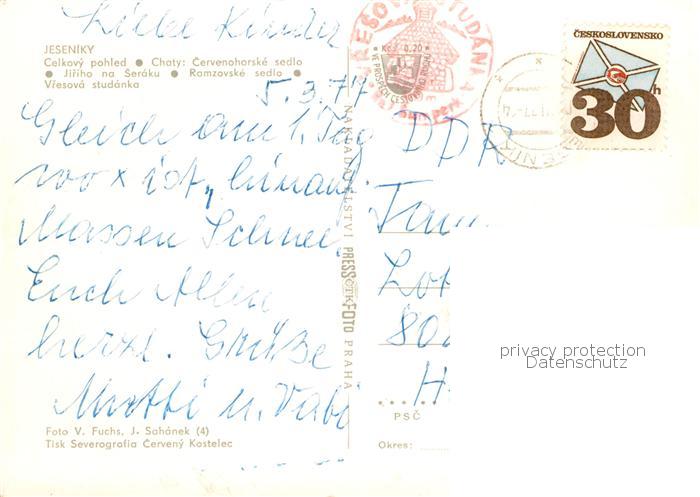 Liebe Kinder
JESENÍKY
Celkový pohled ● Chaty: Červenohorské sedlo
● Jiřího na Šeráku ● Ramzovské sedlo ●
Vřesová studánka
5. 3. 77
Gleich am 1. Tag
100 x ist, hinauf.
Massen Schnee
Euch Allen
herzl. Grüße
Mutti u. Vati
Foto V. Fuchs, J. Sahánek (4)
Tisk Severografia Červený Kostelec
NAKLADATELSTVÍ PRESSFOTO PRAHA
ČTK
VŘESOVÁ STUDÁNKA
Kčs 0,20
VE PROSPĚCH CESTOVNÍHO RUCHU
ČESKOSLOVENSKO
30h
JESENÍK
DDR
PSČ
Okres:
privacy protection
Datenschutz